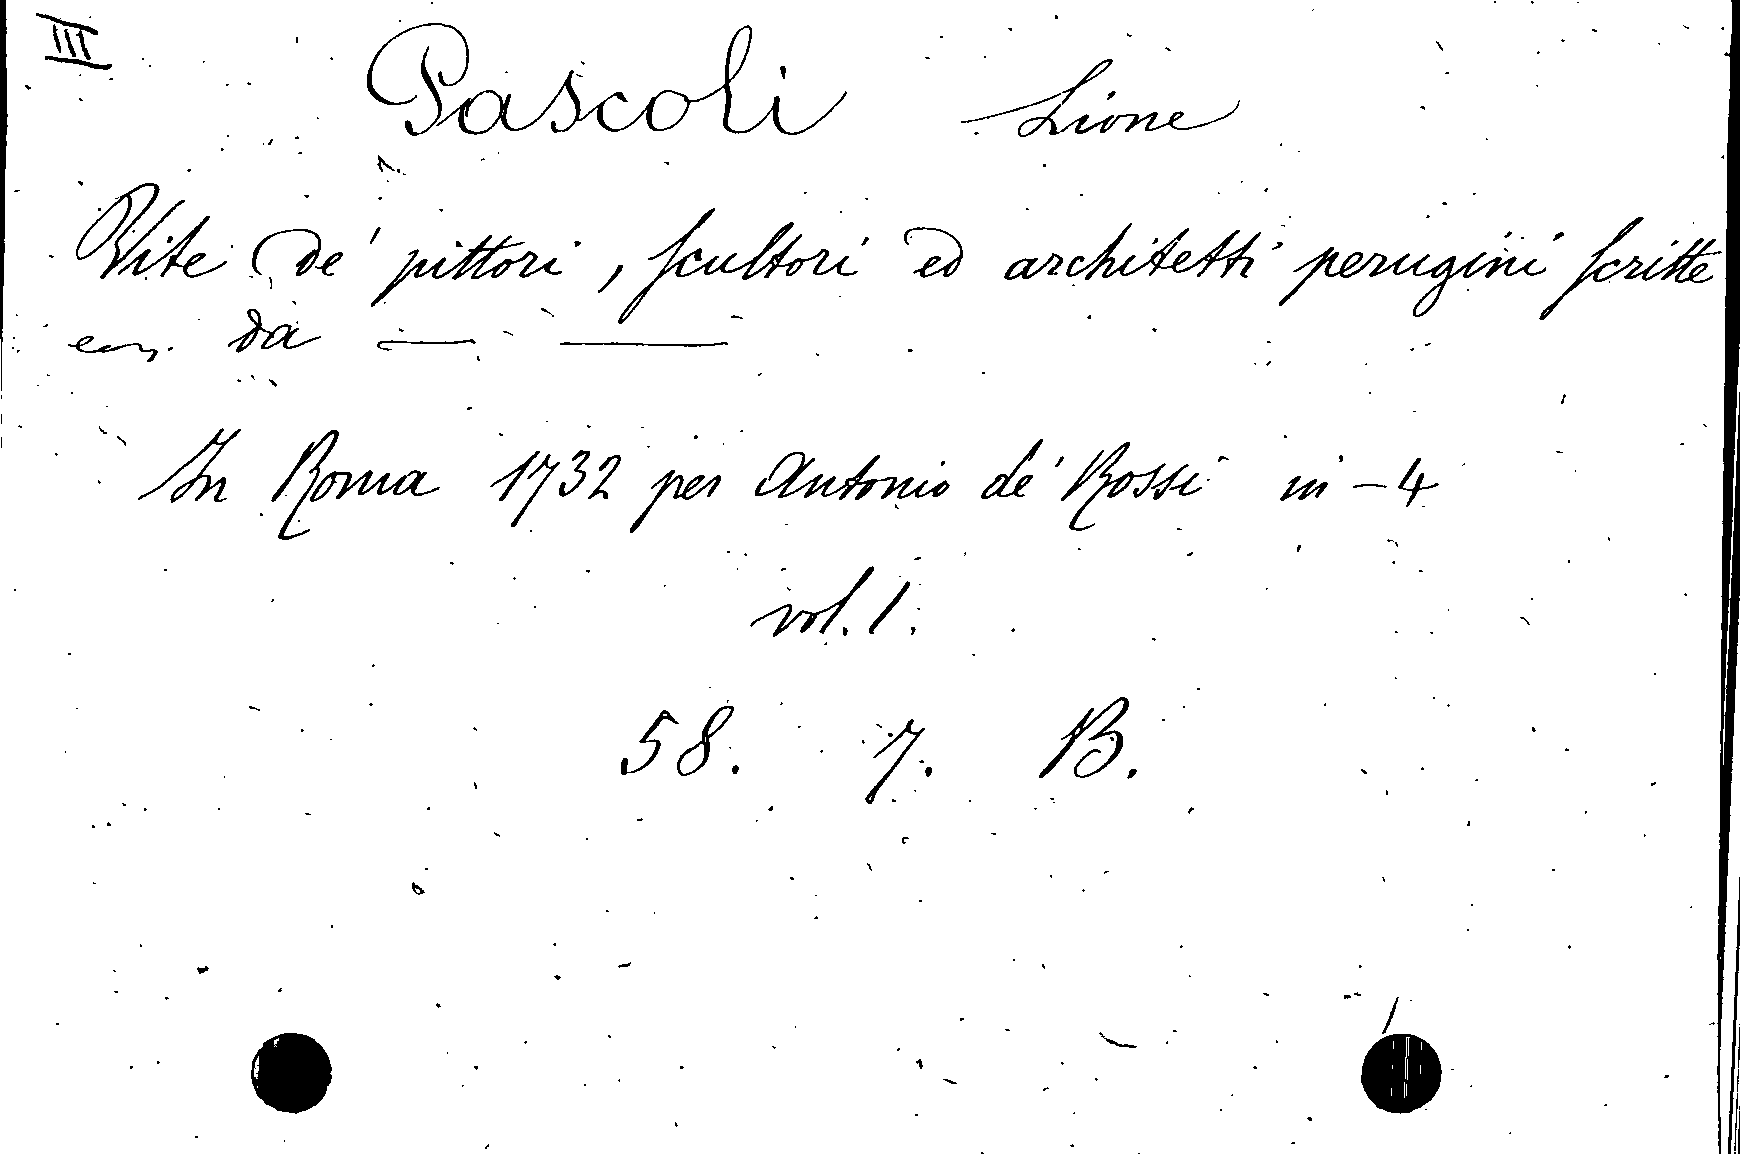 III
Pascoli Lione
Vite de' pittori, scultori ed architetti perugini scritte
da — —
In Roma 1732 per Antonio de' Rossi in-4
vol. 1.
58. 7. B.